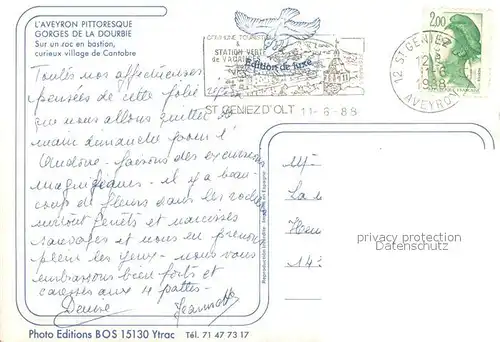 L'AVEYRON PITTORESQUE
GORGES DE LA DOURBIE
Sur un roc en bastion,
curieux village de Cantobre
Toutes nos affectueuses
pensées de cette
que nous allons quitter de-
main dimanche pour l'
faisons des excursions
magnifiques - il y a beau-
coup de fleurs dans les rochers
surtout genêts et narcisses
sauvages et nous en prenons
plein les yeux - nous vous
embrassons bien forts et
caresses aux 4 pattes.
Denise Jeannot
Photo Editions BOS 15130 Ytrac Tél. 71 47 73 17
COMMUNE TOURISTIQUE
STATION VERTE
de VACANCES
Edition de luxe
ST GENIEZ D'OLT 11-6-88
12 ST GENIEZ
11-6
1988
AVEYRON
2,00
Reproduction interdite
M
La
Hen
143
privacy protection
watermark